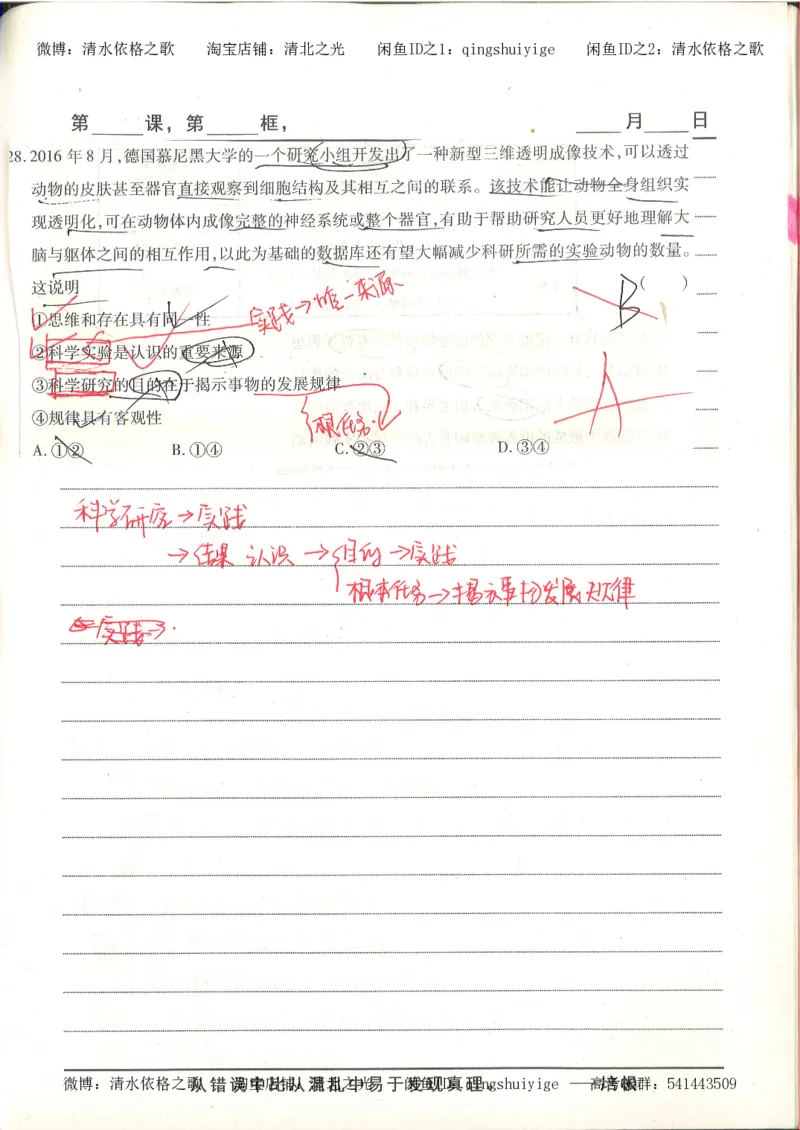 微博：清水依格之歌 淘宝店铺：清北之光 闲鱼ID之1：qingshuiyige 闲鱼ID之2：清水依格之歌
第 课，第 框， 月 日
28.2016年8月,德国慕尼黑大学的一个研究小组开发出了一种新型三维透明成像技术,可以透过
动物的皮肤甚至器官直接观察到细胞结构及其相互之间的联系。该技术能让动物全身组织实
现透明化,可在动物体内成像完整的神经系统或整个器官,有助于帮助研究人员更好地理解大
脑与躯体之间的相互作用,以此为基础的数据库还有望大幅减少科研所需的实验动物的数量。
这说明 ( )
B
实践→唯一来源
①思维和存在具有同一性
②科学实验是认识的重要来源
③科学研究的目的在于揭示事物的发展规律
A
④规律具有客观性
根任务
A.①② B.①④ C.②③ D.③④
科学研究→实践
→结果 认识→目的→实践
根本任务→揭示事物发展规律
实践
微博：清水依格之歌 淘宝店铺：清北之光 闲鱼ID：qingshuiyige 高考群：541443509
从错误中比从混乱中易于发现真理。——培根